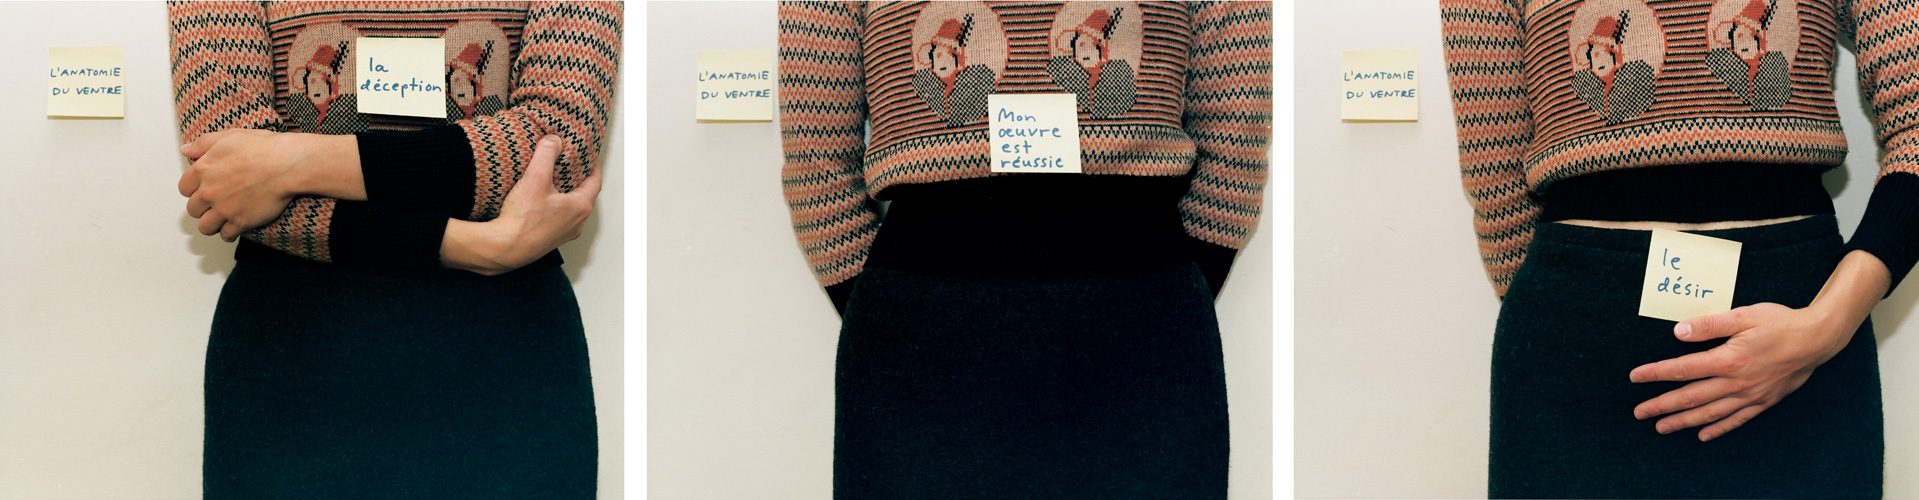 L'ANATOMIE
DU VENTRE
la
déception
L'ANATOMIE
DU VENTRE
Mon
œuvre
est
réussie
L'ANATOMIE
DU VENTRE
le
désir